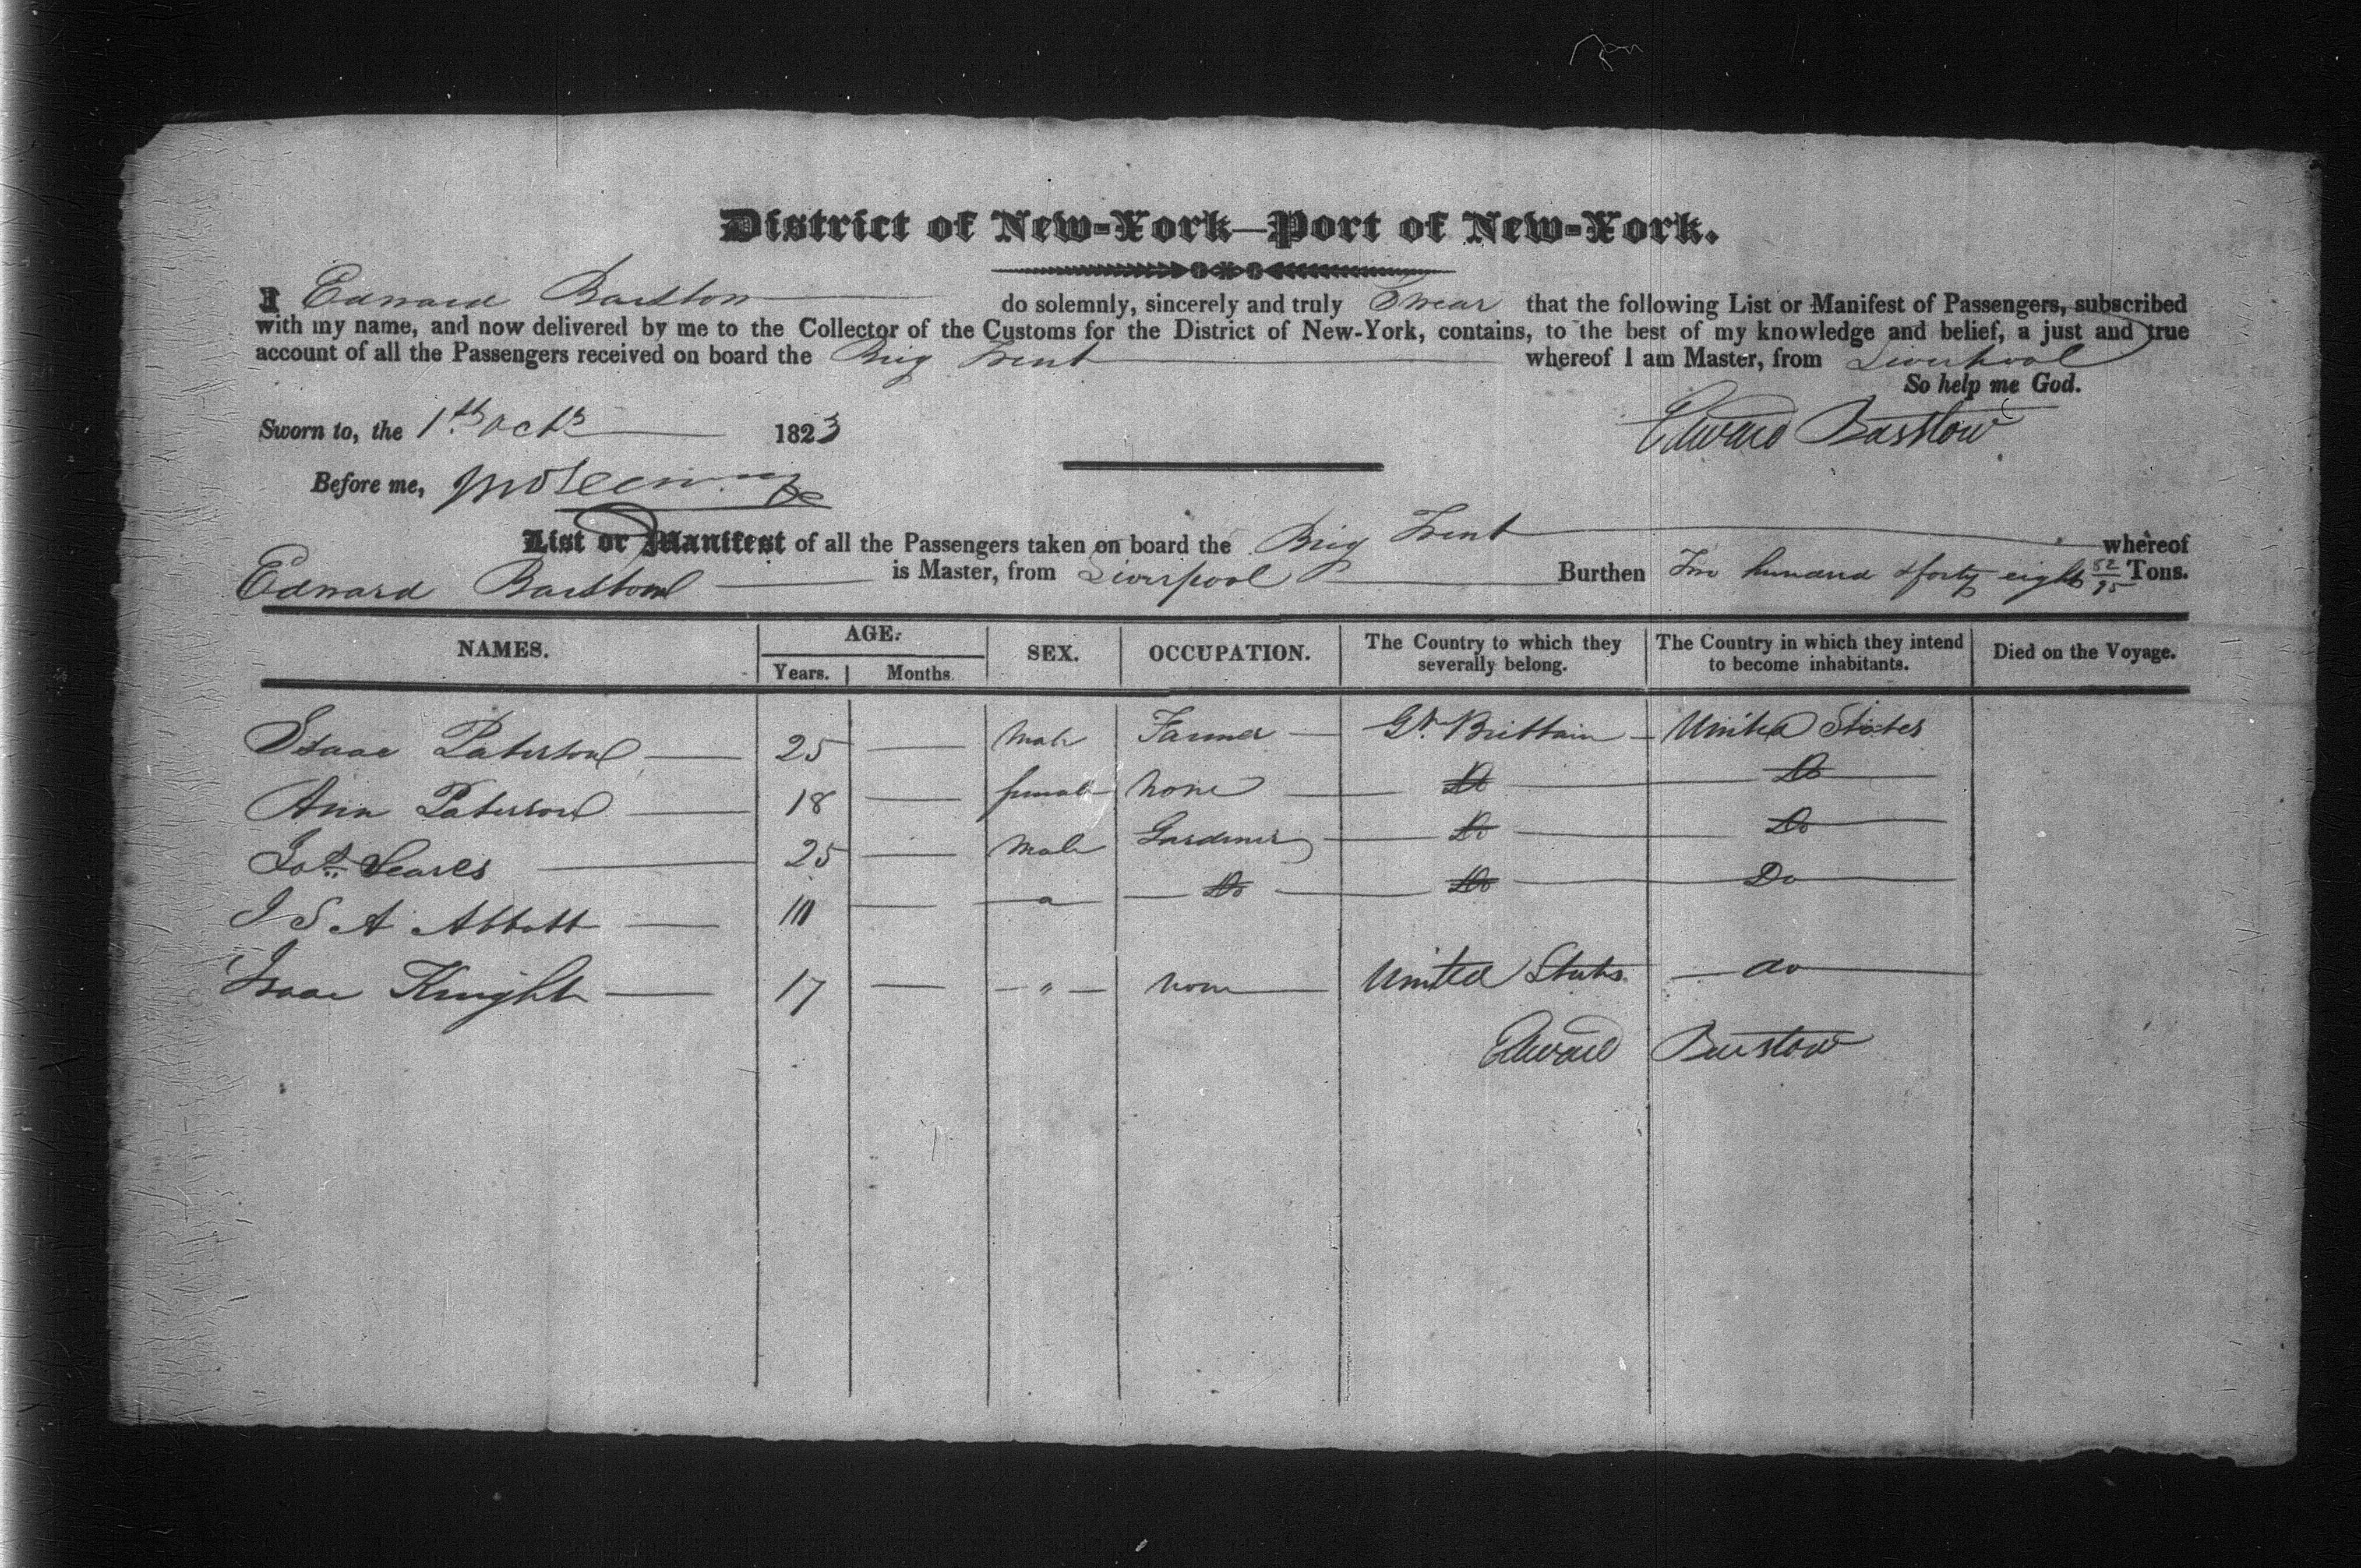 District of New-York—Port of New-York.
I Edward Barstow do solemnly, sincerely and truly Swear that the following List or Manifest of Passengers, subscribed
with my name, and now delivered by me to the Collector of the Customs for the District of New-York, contains, to the best of my knowledge and belief, a just and true
account of all the Passengers received on board the Brig Trent whereof I am Master, from Liverpool
So help me God.
Sworn to, the 1st Octr 1823
Edward Barstow
Before me,
List or Manifest of all the Passengers taken on board the Brig Trent whereof
Edward Barstow is Master, from Liverpool Burthen Two hundred & forty eight 52/95 Tons.
NAMES. AGE. SEX. OCCUPATION. The Country to which they severally belong. The Country in which they intend to become inhabitants. Died on the Voyage.
Years. Months.
Isaac Paterson 25 — Male Farmer Gt. Brittain United States
Ann Paterson 18 — female None Do Do
Searles 25 — Male Gardener Do Do
J S A Abbott — " Do Do Do
Isaac Knight 17 — " None United States do
Edward Barstow